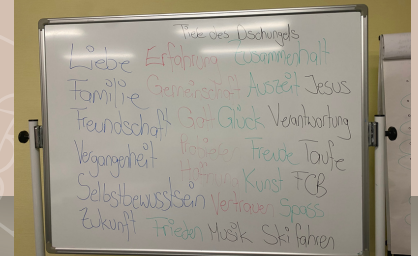 Tiefe des Dschungels
Liebe Erfahrung Zusammenhalt
Familie Gemeinschaft Auszeit Jesus
Freundschaft Gott Glück Verantwortung
Vergangenheit Freude Taufe
Selbstbewusstsein Vertrauen Kunst FCB
Zukunft Frieden Musik Spass Ski fahren